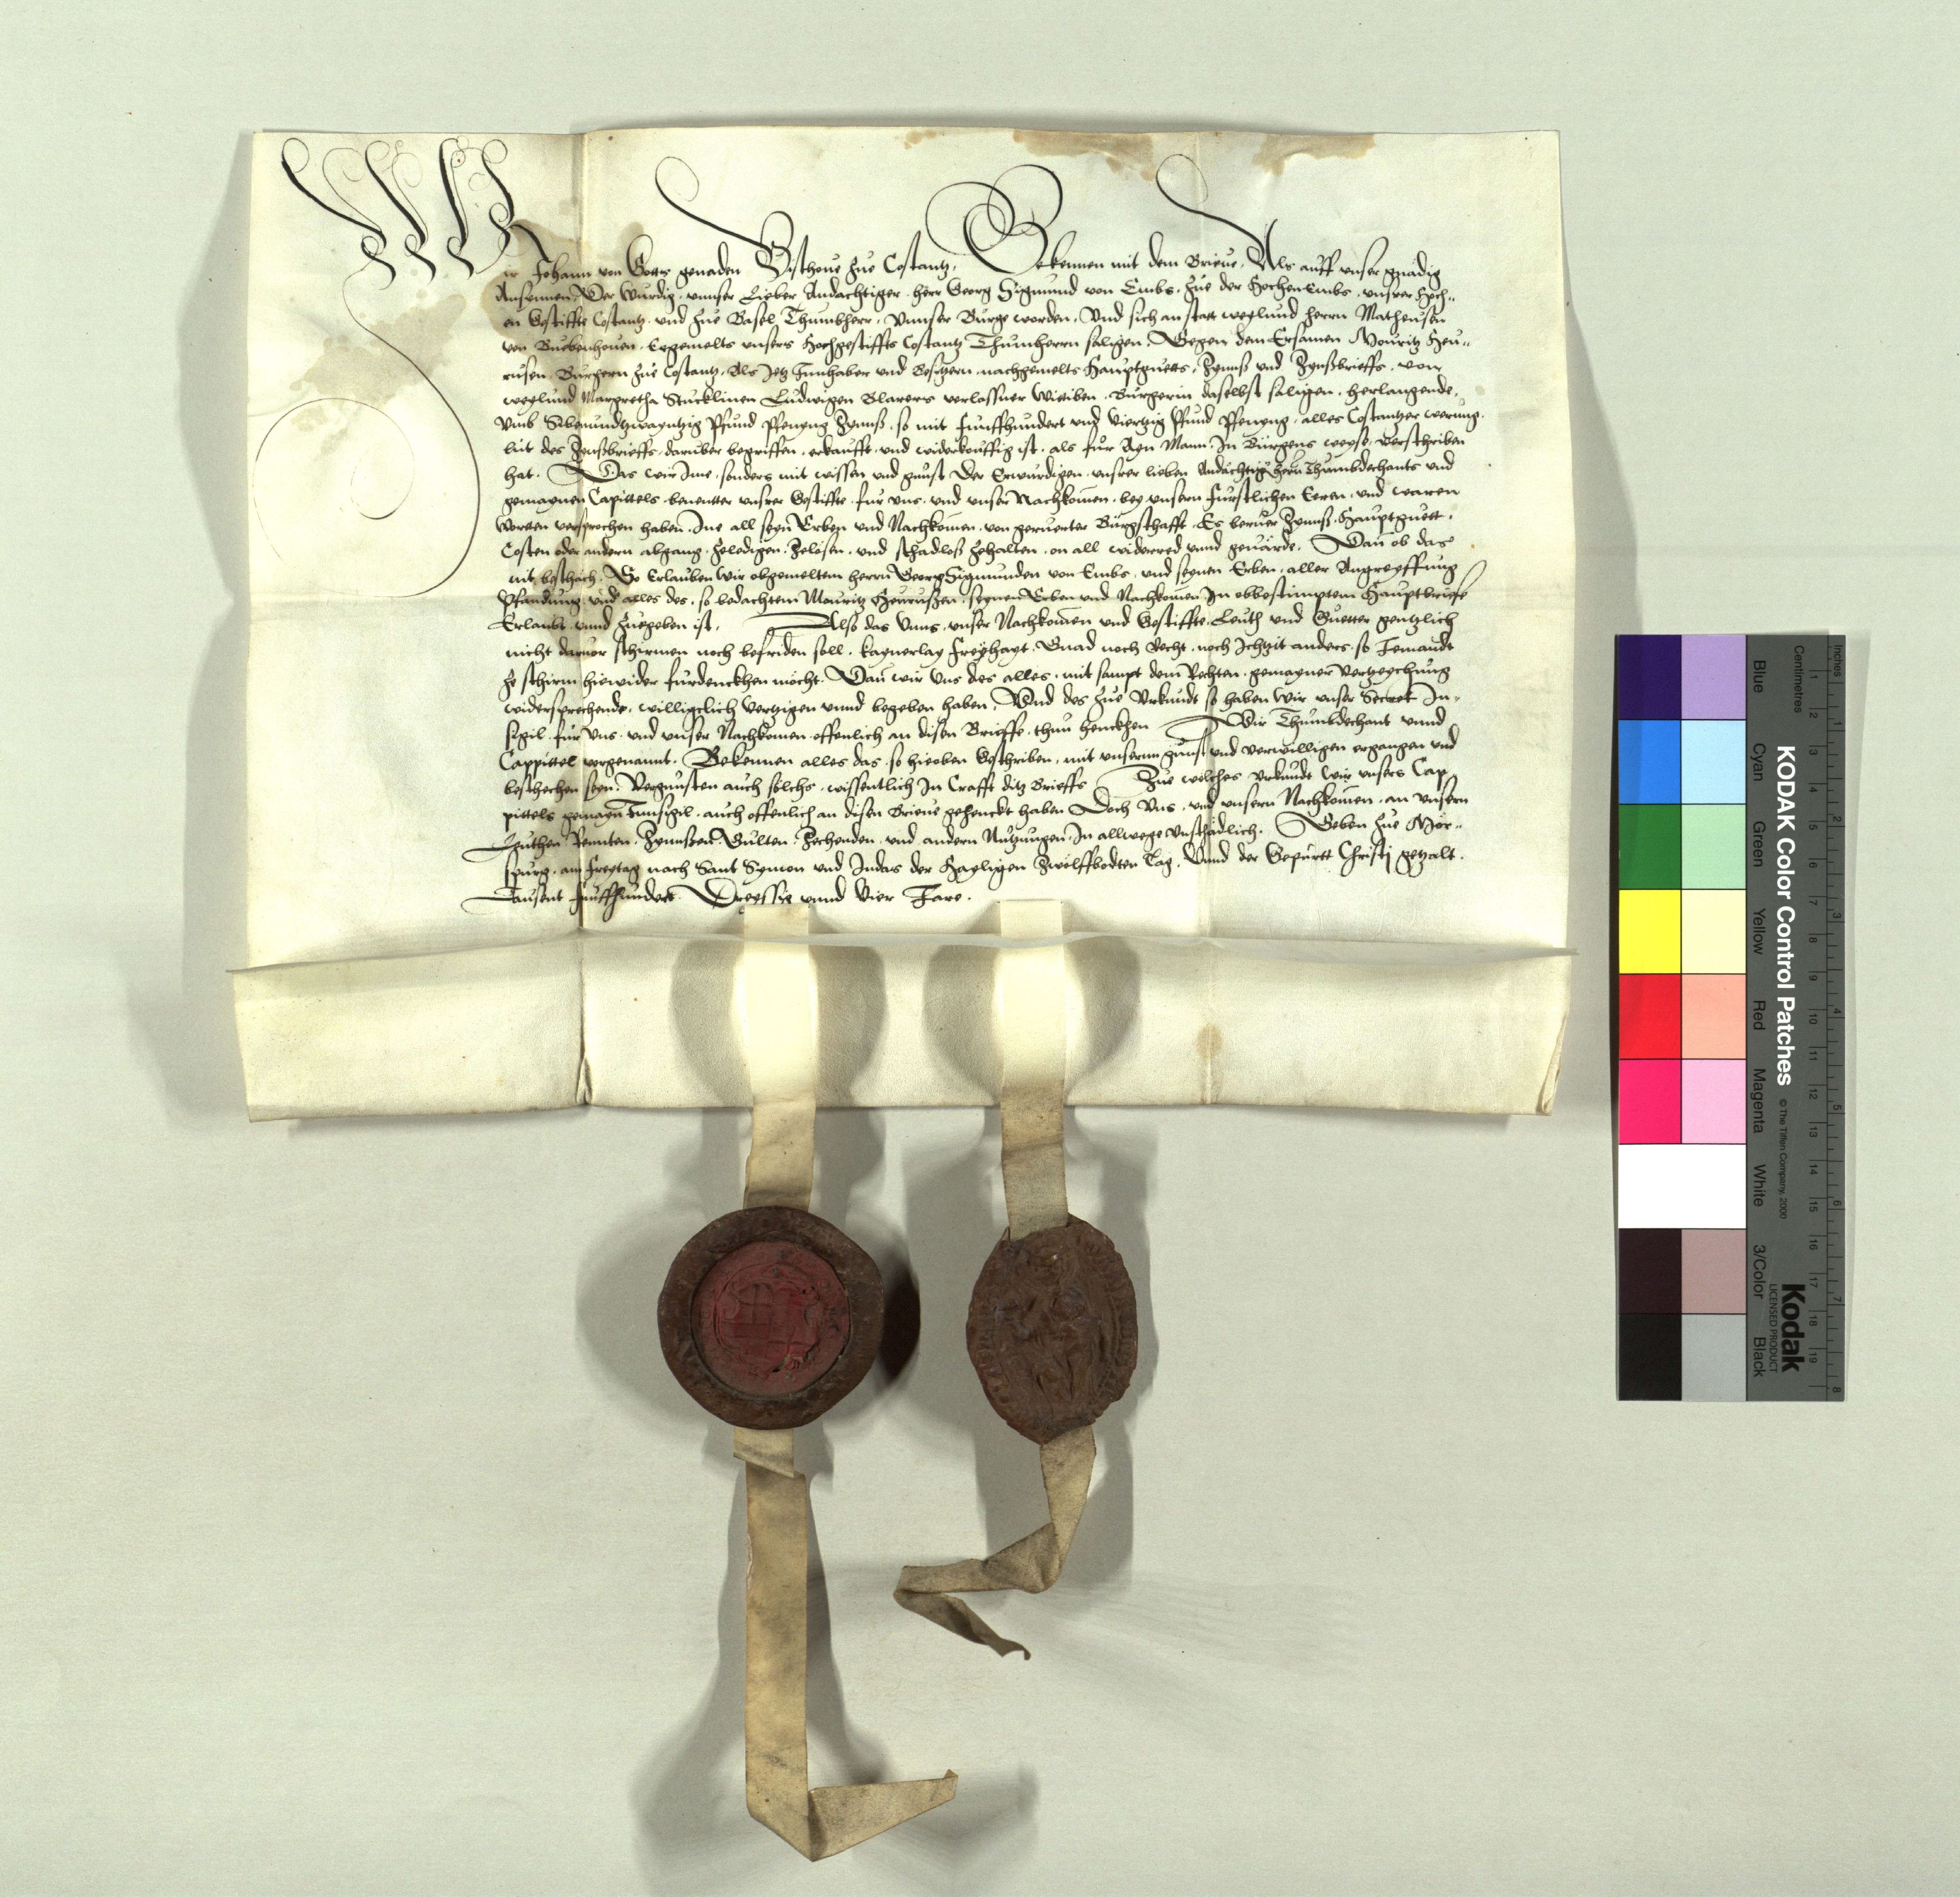 Wir Johann von Gottes genaden Bischoue zue Costantz, Bekennen mit dem Brieue, Als auff vnser gnädig
Ansynnen, Der Wurdig, vnnser Lieber Andächtiger, herr Georg Sigmund von Embs, zue der Hochen Embs, vnsrer Hoch¬
en Gestiffte Costantz, vnd zue Basel Thumbherr, Vnnser Bürge worden, Vnd sich an statt weylund herrn Matheusen
von Buebenhouen, Eegemelts vnsers Hochgestiffts Costantz Thumherrn säligen, Gegen dem Ersamen Mouritz Heu¬
rusen, Burgern zue Costantz, Als Jetz Innhaber vnd Besitzern, nachgemelts Hauptguetts, Zynnß vnd Zynßbrieffs, von
weylund Margretha Stucklinen Ludwigen Blarers verlassner Wittben, Burgerin daselbst säligen, herlangende,
Vmb Sibenundtzwayntzig Pfund Pfenyng Zynnß, so mit funffhundert vnd Viertzig Pfund Pfenyng, alles Costantzer werung,
lut des Zynßbrieffs, daruber begriffen, erkaufft, vnd widerkouffig ist, als für Ayn Mann, In Bürgens weyse, verschriben
hat. Das wir Ime, sonders mit wissen vnd gunst Der Erwurdigen, vnsrer lieben Andächtigen herrn Thumbdechants vnd
gemaynen Capittels, benentter vnsrer Gestiffte, fur vns, vnd vnser Nachkomen, bey vnsern furstlichen Eeren, vnd waren
Worten versprochen haben, Ine all seyn Erben vnd Nachkomen, von geruerter Bürgschafft, Es beruer Zynnß, Hauptguett,
Costen oder andern abgang, zeledigen, zelösen, vnd schadloß zehalten, on all widerred vnnd geuärde. Dan ob das
nit beschäch, So Erlauben wir obgemeltem herrn Georg Sigmunden von Embs, vnd seynen Erben, aller Angreyffung
Pfandung, vnd alles des, so bedachtem Mauritz Heurussen, seynen Erben vnd Nachkomen In obbestimptem Hauptbrieff
Erlaubt, vnnd zuegeben ist. Also das Vnns, vnser Nachkomen vnd Gestiffte, Leuth vnd Guetter gentzlich
nicht daruor schirmen noch befriden soll, kaynerlay freyhayt, Gnad noch Recht, noch Ichtzit anders, so Jemandt
ze schirm hiewider furdenckhen möcht. Dan wir Vns des alles, mit sampt dem Rechten, gemayner Vertzeychung
widersprechende, willigclich Vertzigen vnnd begeben haben. Vnd des zue Vrkundt so haben Wir vnser Secret In¬
sigil fur Vns, vnd vnser Nachkomen offenlich an disen Brieffe, thun henckhen Wir Thumbdechant vnnd
Cappittel vorgenannt, Bekennen alles das, so hieoben Geschriben, mit vnserm gunst vnd verwilligen ergangen vnd
beschechen seyn, Vergunsten auch sölchs, wissentlich In Crafft ditz Brieffs Zue welches vrkundt wir vnsers Cap
pittels gemayn Innsigil, auch offenlich an disen Brieue gehenckt haben Doch Vns, vnd vnsern Nachkomen, an vnsern
Leuthen Rennten, Zynnßen, Gulten, Zechenden, vnd andern Nutzungen, In allwege vnschädlich. Geben zue Mör¬
spurg, am freytag nach Sant Symon vnd Judas der Hayligen Zwölffbodten Tag, Vnnd der Gepurtt Christj getzalt,
Tausent funffhundert Dreyssig vnnd Vier Jare.
KODAK Color Control Patches © The Tiffen Company, 2000
Kodak
LICENSED PRODUCT
Blue Cyan Green Yellow Red Magenta White 3/Color Black
Inches 1 2 3 4 5 6 7 8
Centimetres 1 2 3 4 5 6 7 8 9 10 11 12 13 14 15 16 17 18 19